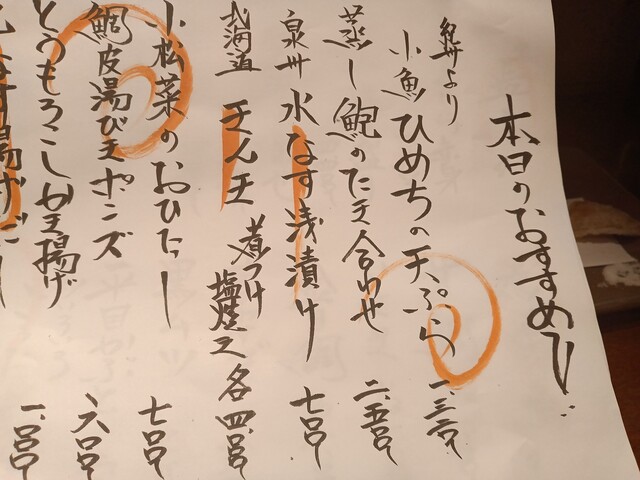 本日のおすすめ
舟より
小魚ひめぢの天ぷら 一、三〇〇
蒸し鮑のたま合わせ 二、五〇〇
泉州水なす浅漬け 七〇〇
北海道 きんき 煮つけ 塩焼き 各四、〇〇〇
小松菜のおひたし 七〇〇
鯛皮湯びきポン ズ 六〇〇
とうもろこしかき揚げ 一、〇〇〇
なす揚げだし